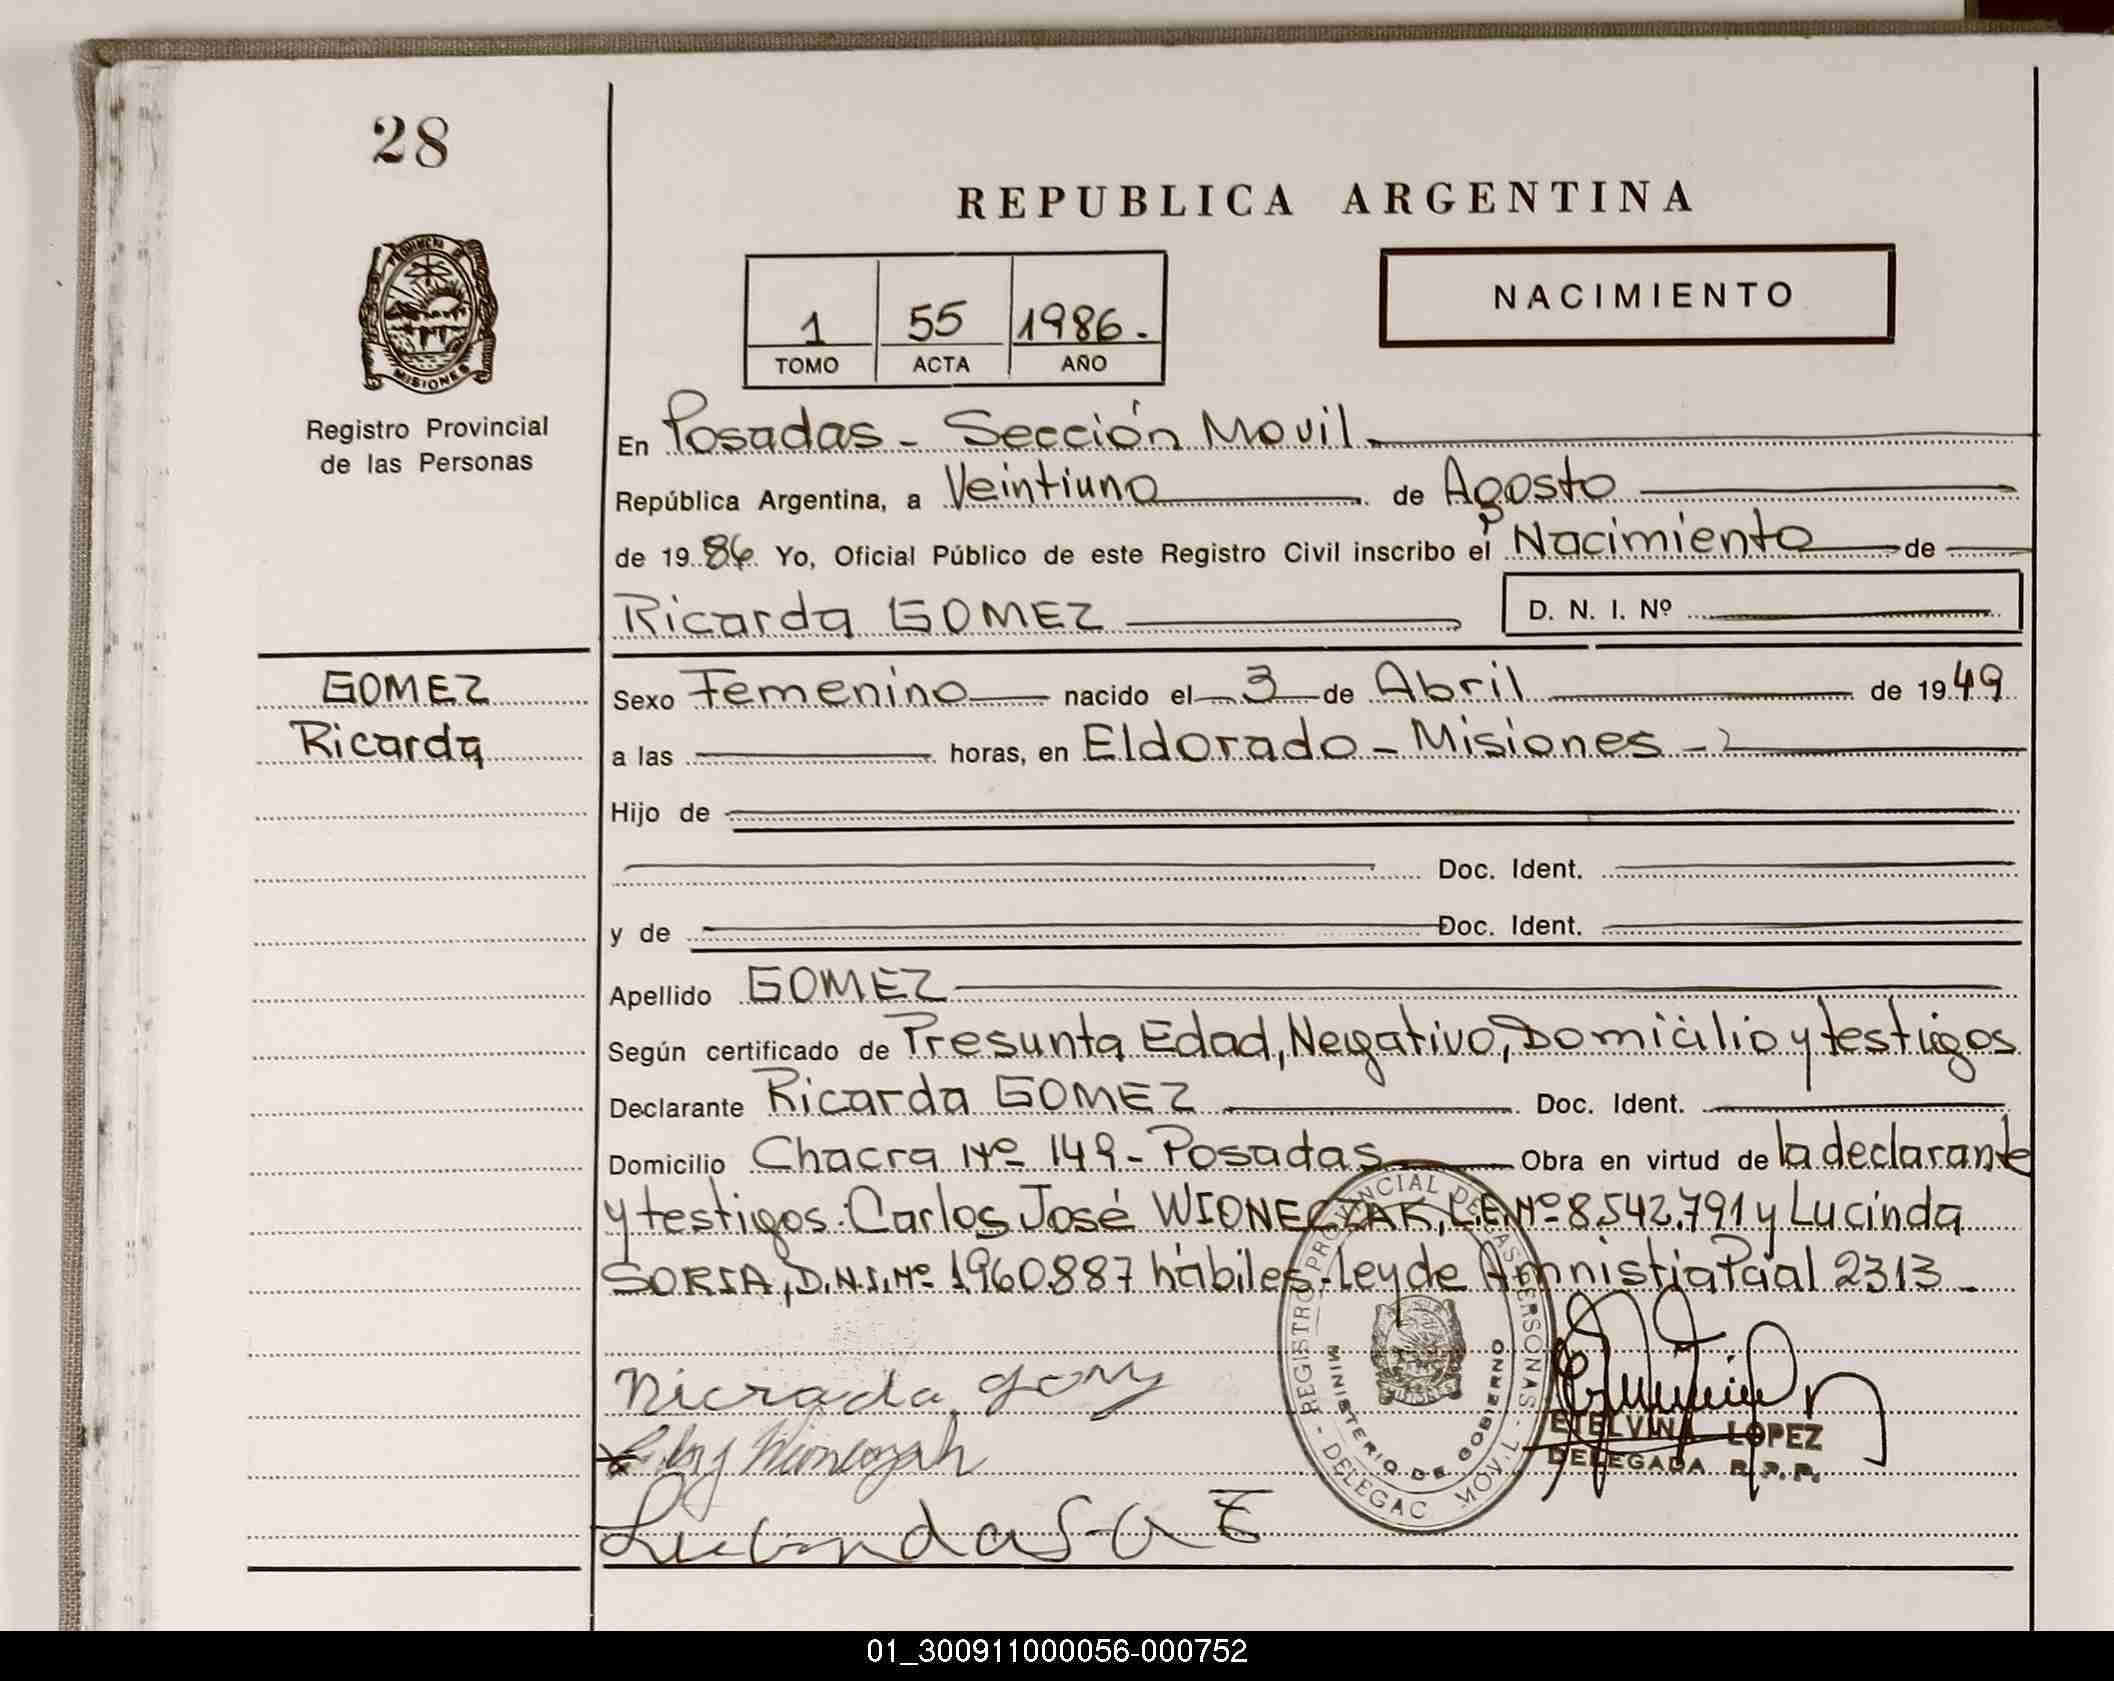 28
REPUBLICA ARGENTINA
PROVINCIA DE
MISIONES
Registro Provincial
de las Personas
1 55 1986.
TOMO ACTA AÑO
NACIMIENTO
En Posadas - Sección Movil
República Argentina, a Veintiuno de Agosto
de 19 86 Yo, Oficial Público de este Registro Civil inscribo el Nacimiento de
Ricarda GOMEZ D. N. I. Nº
GOMEZ
Ricarda
Sexo Femenino nacido el 3 de Abril de 19 49
a las horas, en Eldorado - Misiones -
Hijo de
Doc. Ident.
y de Doc. Ident.
Apellido GOMEZ
Según certificado de Presunta Edad, Negativo, Domicilio y testigos
Declarante Ricarda GOMEZ Doc. Ident.
Domicilio Chacra Nº 149 - Posadas Obra en virtud de la declarante
y testigos: Carlos José WIONECZAK, L.E. Nº 8.542.791 y Lucinda
SORIA, D.N.I. Nº 1.960.887 hábiles - Ley de Amnistia Pcial 2313 -
REGISTRO PROVINCIAL DE LAS PERSONAS - DELEGAC MOVIL -
MINISTERIO DE GOBIERNO
ETELVINA LOPEZ
DELEGADA R.P.P.
01_300911000056-000752